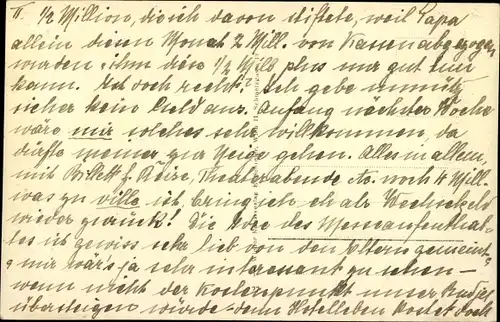 II. 1/2 Million, die ich davon stiftete, weil Papa
allein diesen Monat 2 Mill. von Kassen abgezogen
wurden ihm diese 1/2 Mill. plus nur gut tun
kann. Ist doch recht? Ich gebe unnütz
sicher kein Geld aus. Anfang nächster Woche
wäre mir solches sehr willkommen, da
dürfte meiner zur Neige gehen. Alles in allem,
mit Billett f. Reise, Theaterabende etc. noch 4 Mill.
was zu viel ist, bring ich eh als Wechselgeld
wieder zurück! Die Idee des Messeaufenthal-
tes ist gewiss sehr lieb von den Eltern gemeint
& mir wär's ja sehr interessant zu sehen –
wenn nicht der Kostenpunkt unser Budget
übersteigen würde – denn Hotelleben kostet doch